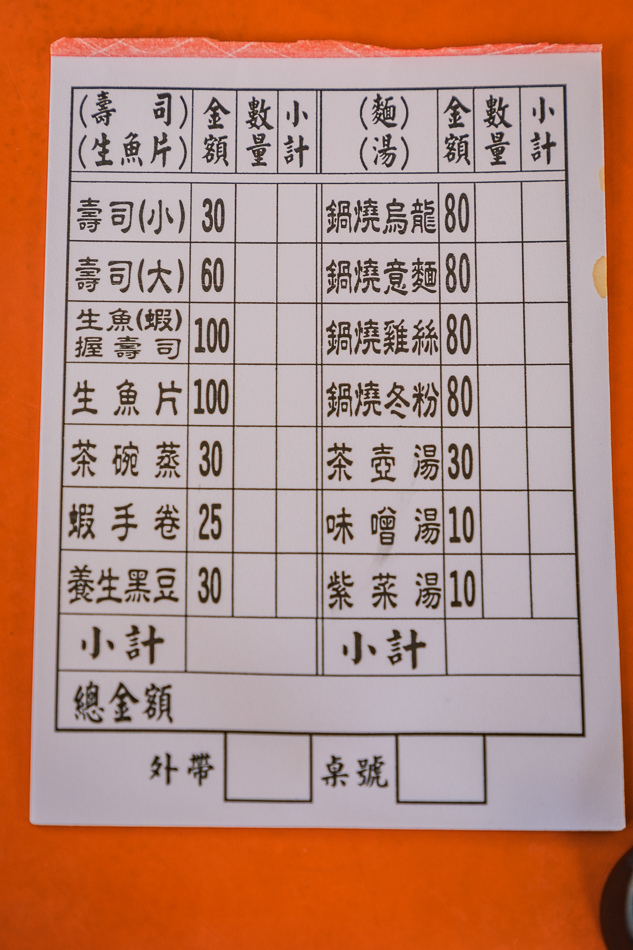 (壽司) 金額 數量 小計 (麵) 金額 數量 小計
(生魚片) (湯)
壽司(小) 30 鍋燒烏龍 80
壽司(大) 60 鍋燒意麵 80
生魚(蝦)
握壽司 100 鍋燒雞絲 80
生魚片 100 鍋燒冬粉 80
茶碗蒸 30 茶壺湯 30
蝦手卷 25 味噌湯 10
養生黑豆 30 紫菜湯 10
小計 小計
總金額
外帶 桌號